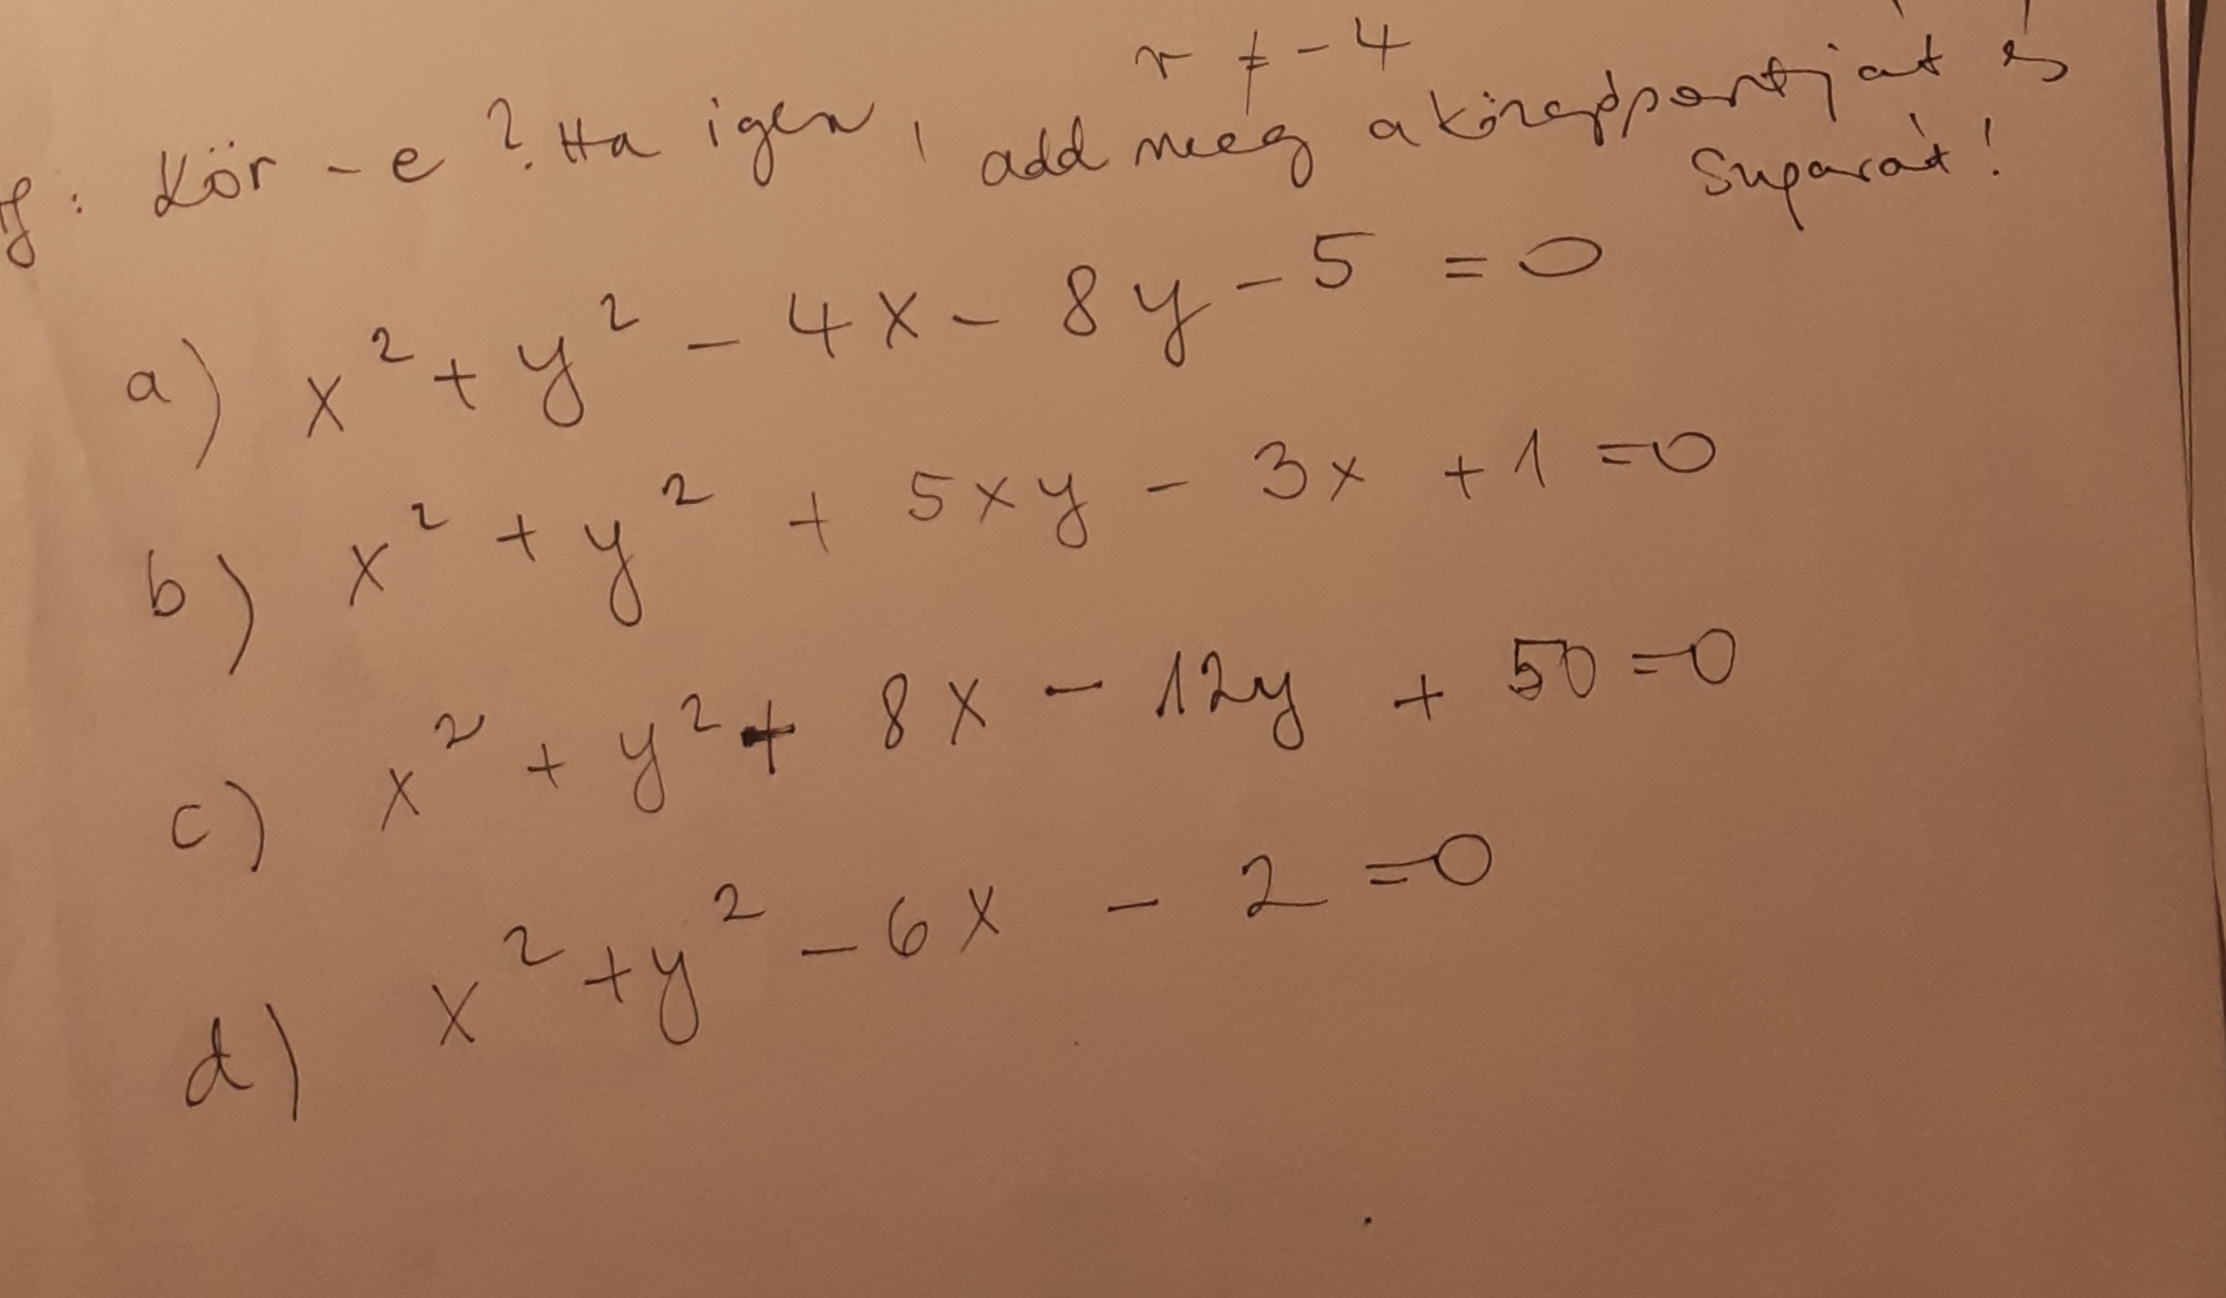 r ≠ -4
f: Kör-e? Ha igen, add meg a középpontját és
sugarát!
a) x² + y² - 4x - 8y - 5 = 0
b) x² + y² + 5xy - 3x + 1 = 0
c) x² + y² + 8x - 12y + 50 = 0
d) x² + y² - 6x - 2 = 0